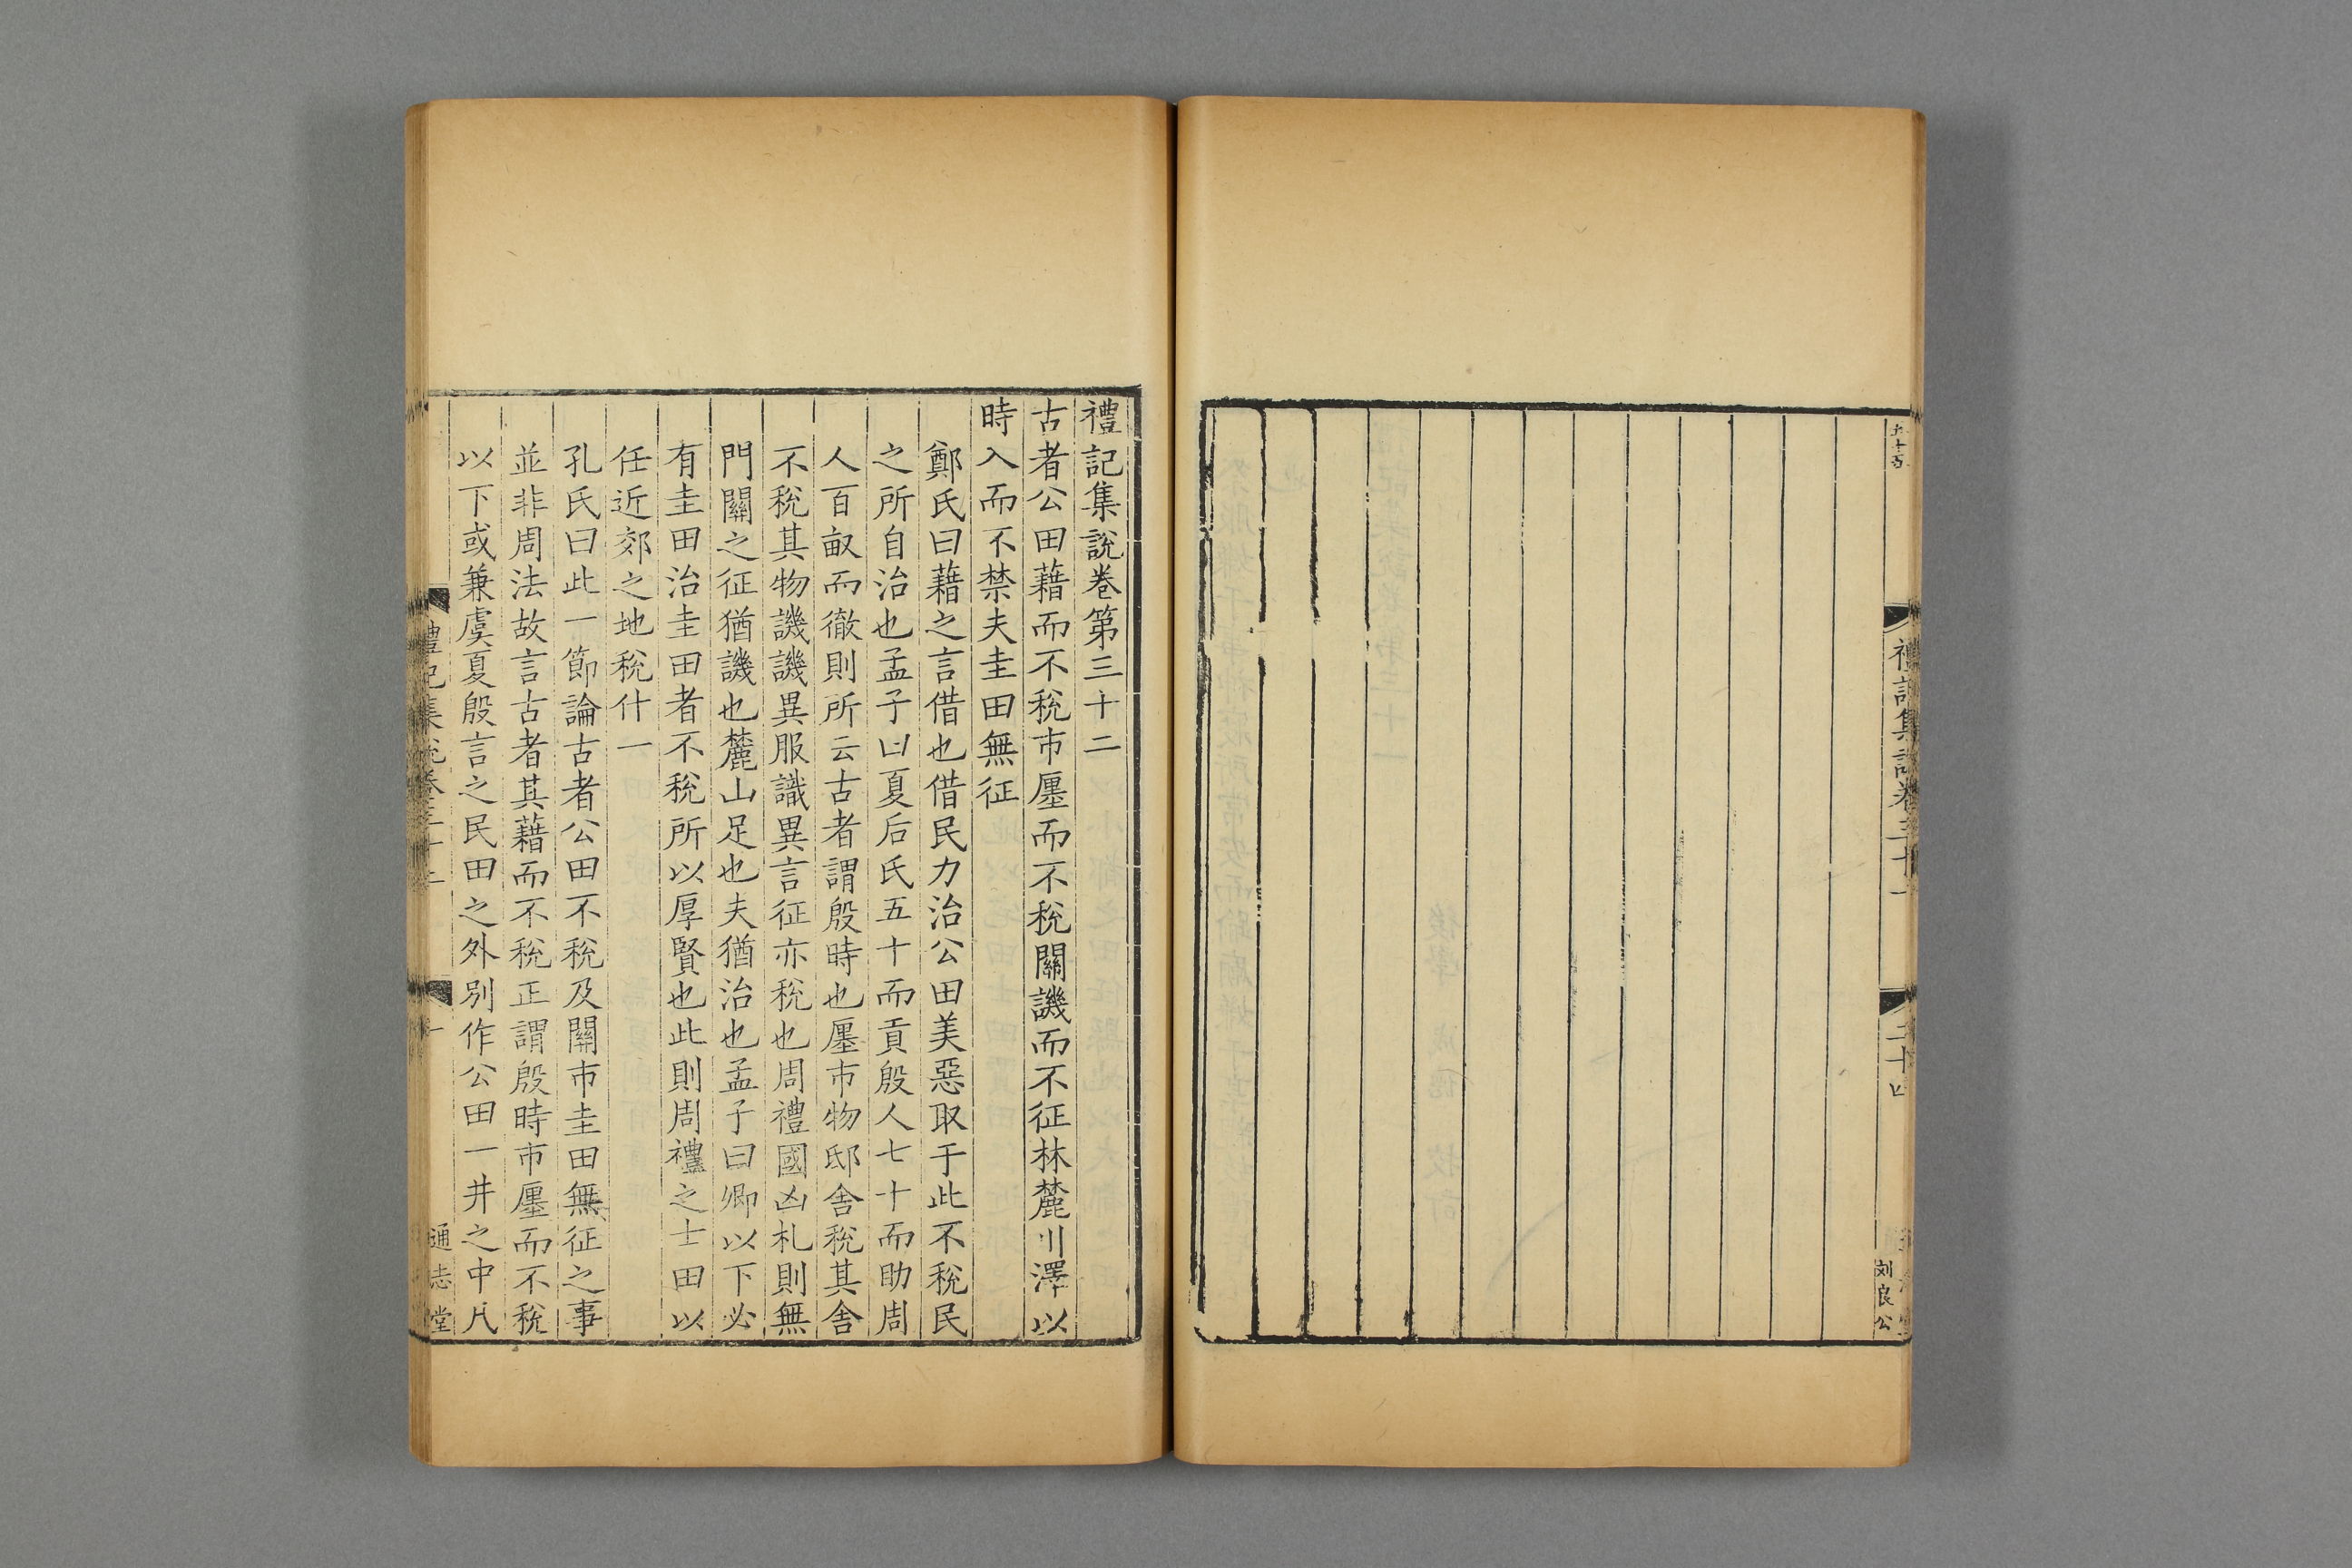 禮記集說卷三十一
二十四
刘良公
禮記集說卷第三十二
古者公田藉而不稅市廛而不稅關譏而不征林麓川澤以
時入而不禁夫圭田無征
鄭氏曰藉之言借也借民力治公田美惡取于此不稅民
之所自治也孟子曰夏后氏五十而貢殷人七十而助周
人百畝而徹則所云古者謂殷時也廛市物邸舍稅其舍
不稅其物譏譏異服識異言征亦稅也周禮國凶札則無
門關之征猶譏也麓山足也夫猶治也孟子曰卿以下必
有圭田治圭田者不稅所以厚賢也此則周禮之士田以
任近郊之地稅什一
孔氏曰此一節論古者公田不稅及關市圭田無征之事
並非周法故言古者其藉而不稅正謂殷時市廛而不稅
以下或兼虞夏殷言之民田之外別作公田一井之中凡
禮記集說卷三十二
一
通志堂